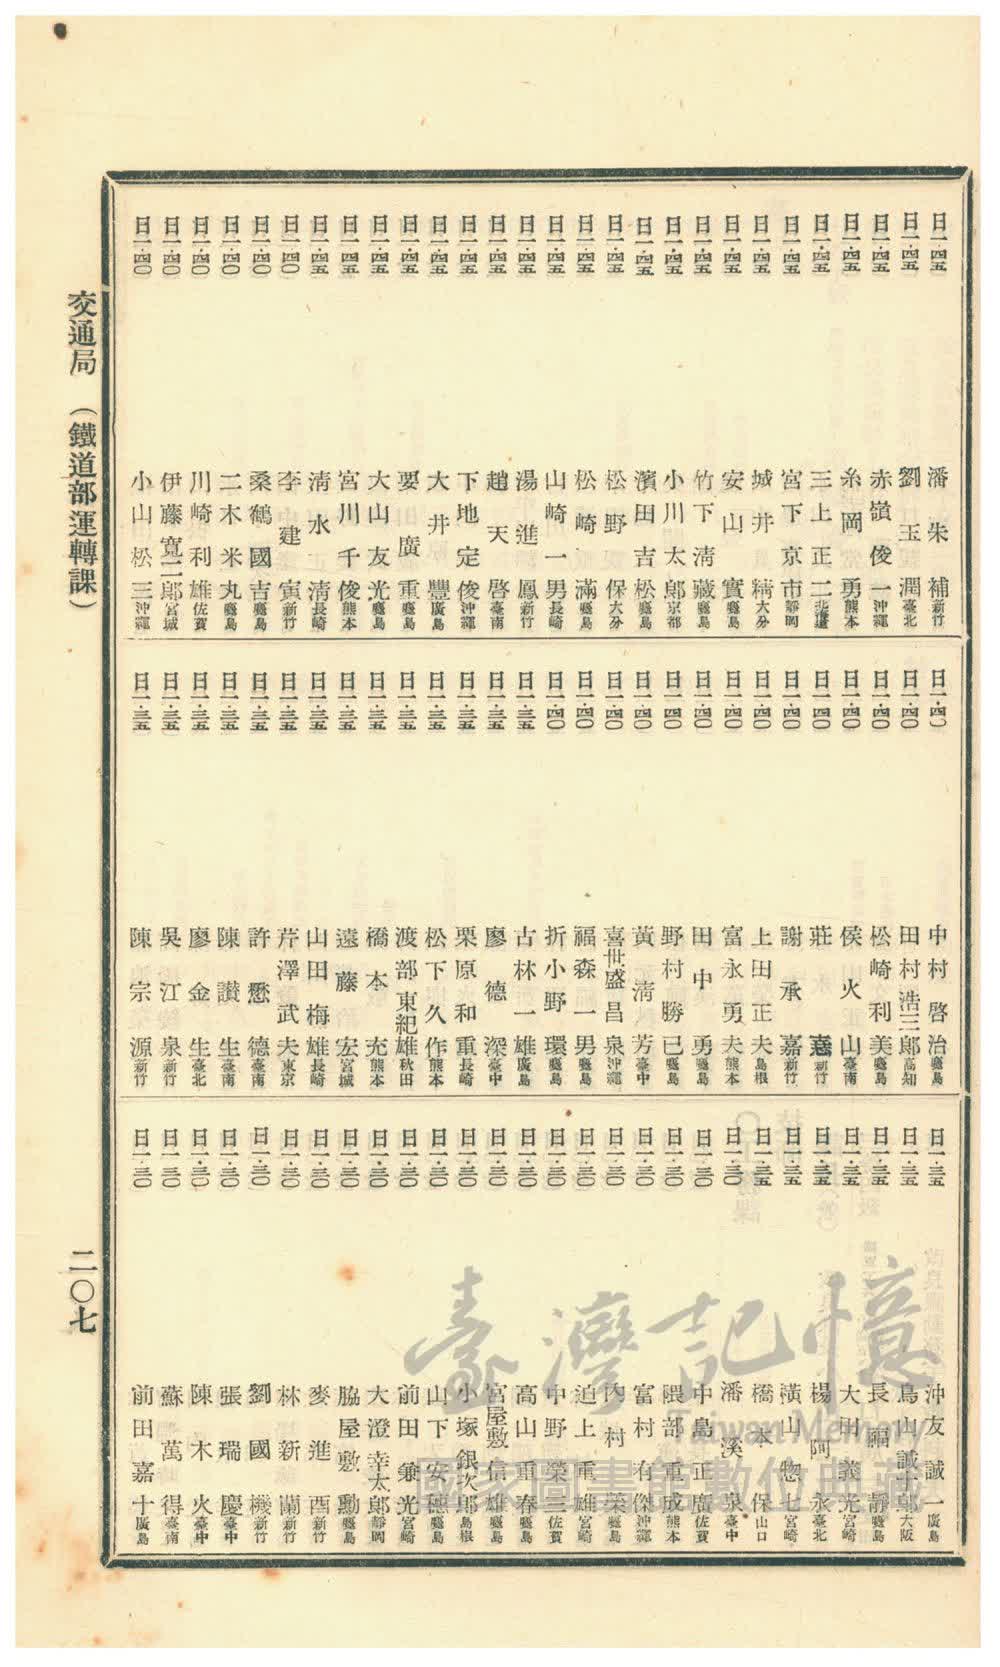 日一・四五 潘朱補 新竹
日一・四五 劉玉潤 臺北
日一・四五 赤嶺俊一 沖繩
日一・四五 糸岡勇 熊本
日一・四五 三上正二 北海道
日一・四五 宮下京市 靜岡
日一・四五 城井精 大分
日一・四五 安山實 鹿兒島
日一・四五 竹下清藏 鹿兒島
日一・四五 小川開太郎 京都
日一・四五 濱田吉松 鹿兒島
日一・四五 松野保 大分
日一・四五 松崎滿 鹿兒島
日一・四五 山崎一男 長崎
日一・四五 湯進鳳 新竹
日一・四五 趙天啓 臺南
日一・四五 下地定俊 沖繩
日一・四五 大井豐 廣島
日一・四五 要廣重 鹿兒島
日一・四五 大山友光 鹿兒島
日一・四五 宮川千俊 熊本
日一・四五 清水清 長崎
日一・四〇 李建寅 新竹
日一・四〇 桑鶴國吉 鹿兒島
日一・四〇 二木米丸 鹿兒島
日一・四〇 川崎利雄 佐賀
日一・四〇 伊藤寬二郎 宮城
日一・四〇 小山松三 沖繩
日一・四〇 中村啓治 鹿兒島
日一・四〇 田村浩三郎 高知
日一・四〇 松崎利美 鹿兒島
日一・四〇 侯火山 臺南
日一・四〇 莊 新竹
日一・四〇 謝承嘉 新竹
日一・四〇 上田正夫 島根
日一・四〇 富永勇夫 熊本
日一・四〇 田中勇 鹿兒島
日一・四〇 野村勝已 鹿兒島
日一・四〇 黃清芳 臺中
日一・四〇 喜世盛昌泉 沖繩
日一・四〇 福森一男 鹿兒島
日一・四〇 折小野環 鹿兒島
日一・三五 古林一雄 廣島
日一・三五 廖德深 臺中
日一・三五 栗原和重 長崎
日一・三五 松下久作 熊本
日一・三五 渡部東紀雄 秋田
日一・三五 橋本充 熊本
日一・三五 遠藤宏 宮城
日一・三五 山田梅雄 長崎
日一・三五 芹澤武夫 東京
日一・三五 許懋德 臺南
日一・三五 陳讃生 臺南
日一・三五 廖金生 臺北
日一・三五 吳江泉 新竹
日一・三五 陳宗源 新竹
日一・三五 沖友誠一 廣島
日一・三五 鳥山誠十郎 大阪
日一・三五 長福靜 鹿兒島
日一・三五 大田義光 宮崎
日一・三五 楊阿永 臺北
日一・三五 橫山惣七 宮崎
日一・三五 橋本保 山口
日一・三〇 潘溪泉 臺中
日一・三〇 中島正廣 佐賀
日一・三〇 隈部重成 熊本
日一・三〇 富村有傑 沖繩
日一・三〇 內村榮 鹿兒島
日一・三〇 迫上重雄 宮崎
日一・三〇 中野榮三 佐賀
日一・三〇 高山重春 鹿兒島
日一・三〇 宮屋敷信雄 鹿兒島
日一・三〇 小塚銀次郎 島根
日一・三〇 山下安德 鹿兒島
日一・三〇 前田兼光 宮崎
日一・三〇 大澄幸太郎 靜岡
日一・三〇 脇屋敷勳 鹿兒島
日一・三〇 麥進酉 新竹
日一・三〇 林新蘭 新竹
日一・三〇 劉國機 新竹
日一・三〇 張瑞慶 臺中
日一・三〇 陳木火 臺中
日一・三〇 蘇萬得 臺南
日一・三〇 前田嘉十 廣島
交通局 (鐵道部運轉課)
二〇七
臺灣記憶
Taiwan Memory
國家圖書館數位典藏